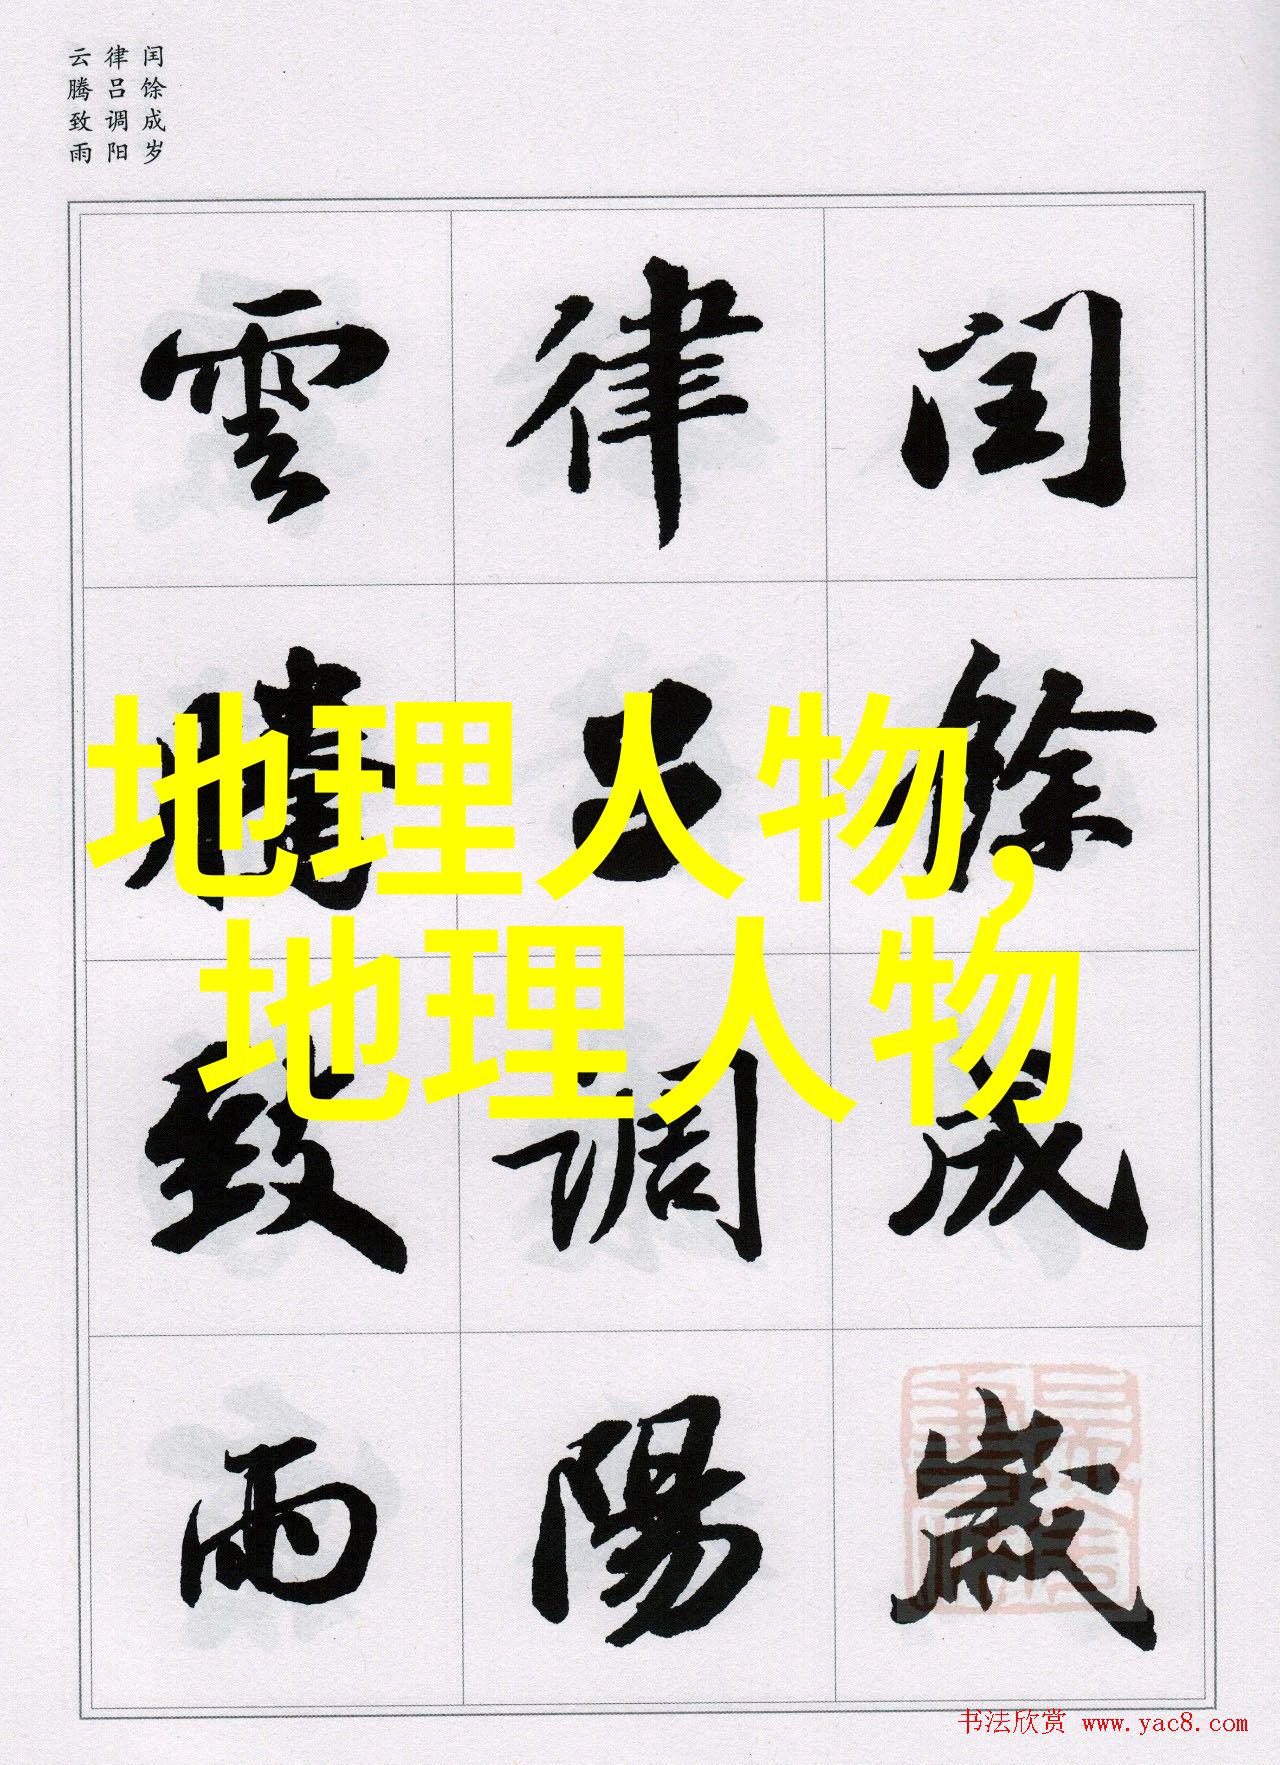 闰馀成岁
律吕调阳
云腾致雨
閏餘成歲
律呂調陽
雲騰致雨
地理人物,
地理人物
书法欣赏 www.yac8.com